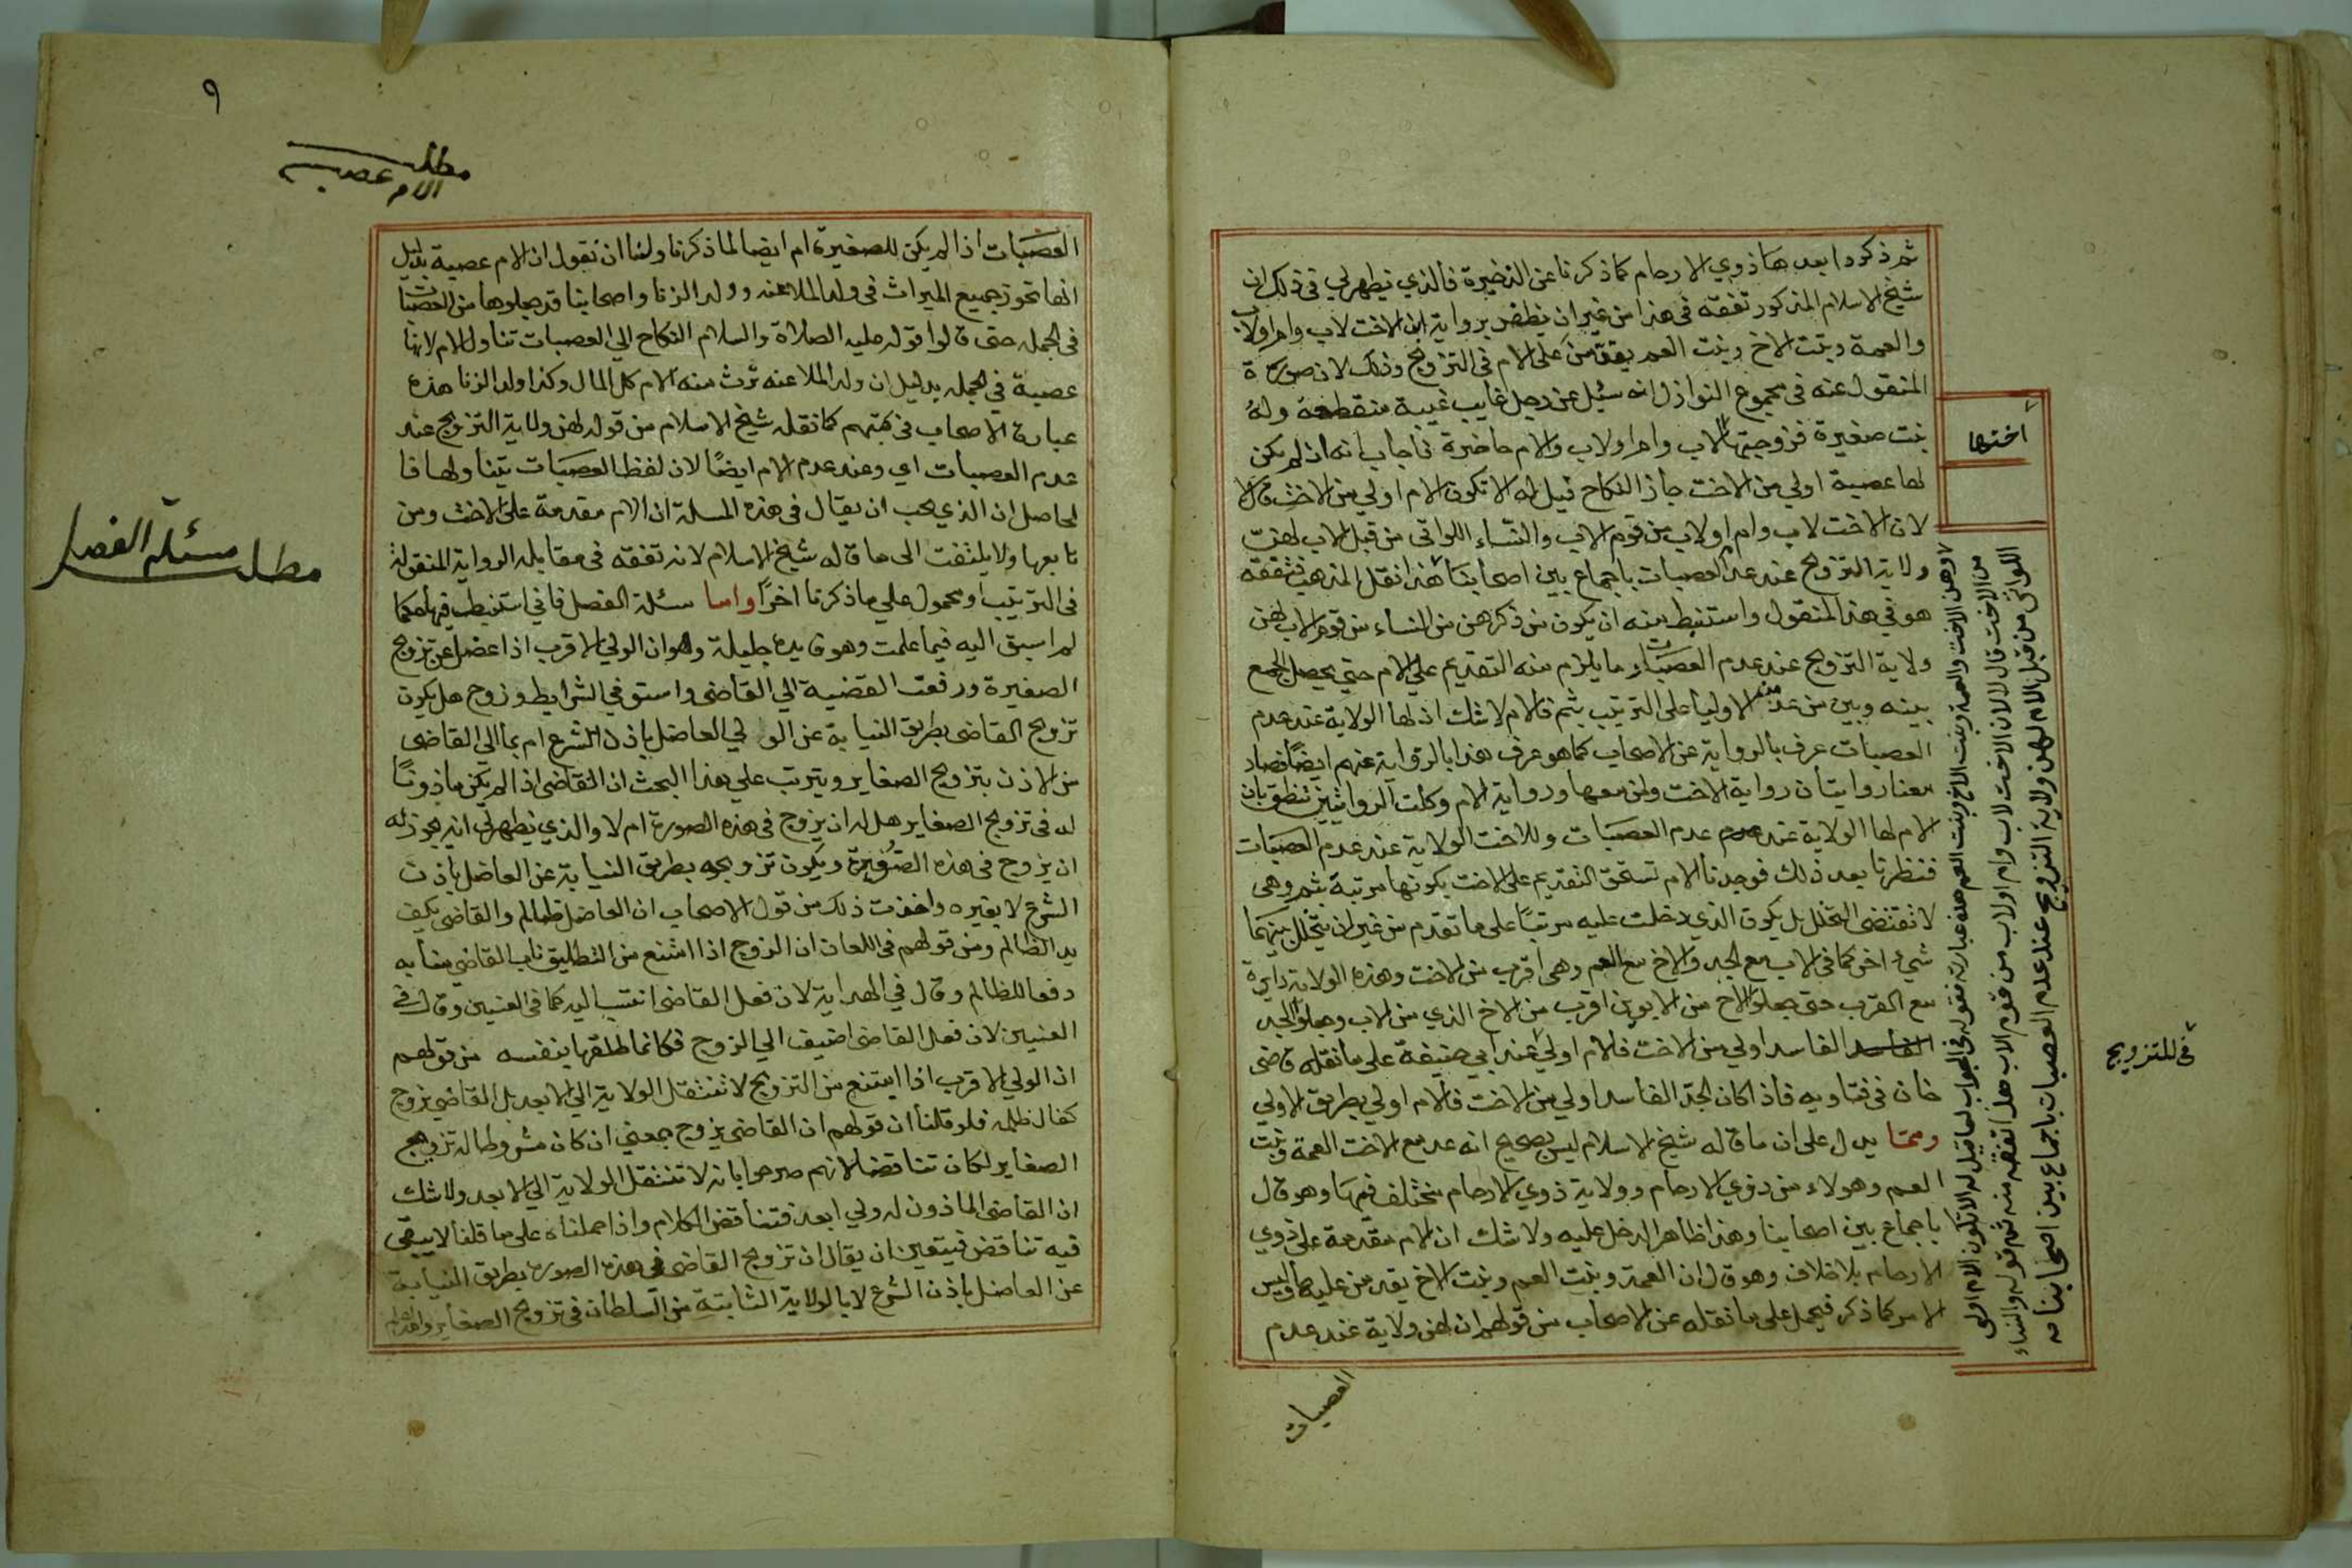 ثم ذكروا بعدها ذوي الارحام كما ذكرنا عن الذخيرة فالذي يظهر لي في ذلك ان
شيخ الاسلام المذكور تفقه في هذا من غير ان يظفر برواية ان الاخت لاب وام اولاب
والعمة وبنت الاخ وبنت العم يقدمن على الام في التزويج وذلك لان صورة
المنقول عنه في مجموع النوازل انه سئل عن رجل غايب غيبة منقطعة وله
بنت صغيرة فزوجتها لاب وام اولاب والام حاضرة فاجاب انه اذا لم يكن
لها عصبة اولي من الاخت جاز النكاح قيل له الا تكون الام اولي من الاخت قال لا
لان الاخت لاب وام اولاب من قوم الاب والنساء اللواتي من قبل الاب لهن
ولاية التزويج عند عدم العصبات باجماع بين اصحابنا هذا نقل المذهب فتفقه
هو في هذا المنقول واستنبط منه ان يكون من ذكرهن من النساء من قوم الاب لهن
ولاية التزويج عند عدم العصبات ما يلزم منه التقديم علي الام حتي يحصل الجمع
بينه وبين من عد منهم الاوليا على الترتيب بثم فالام لاشك ان لها الولاية عند عدم
العصبات عرف بالرواية عن الاصحاب كما هو عرف هذا بالرواية عنهم ايضا فصار
معنا روايتان رواية الاخت ومن معها ورواية الام وكلت الروايتين تنطق بان
الام لها الولاية عند عدم العصبات وللاخت الولاية عند عدم العصبات
فنظرنا بعد ذلك فوجدنا الام تستحق التقديم على الاخت بكونها مرتبة بثم وهي
لا تقتضي التخلل بل يكون الذي دخلت عليه مرتبا على ما تقدم من غير ان يتخلل بينهما
شيء اخر كما في الاب مع الجد والاخ مع العم وهي اقرب من الاخت وهذه الولاية دايرة
مع القرب حتى جعلوا الاخ من الابوين اقرب من الاخ الذي من الاب وجعلوا الجد
الفاسد اولي من الاخت فالام اولي عند ابي حنيفة على ما نقله قاضي
خان في فتاويه فاذا كان الجد الفاسد اولي من الاخت فالام اولي بطريق الاولي
ومما يدل على ان ما قاله شيخ الاسلام ليس بصحيح انه عد مع الاخت العمة وبنت
العم وهولاء من ذوي الارحام وولاية ذوي الارحام مختلف فيها وهو قال
باجماع بين اصحابنا وهذا ظاهر الدخل عليه ولاشك ان الام مقدمة على ذوي
الارحام بلا خلاف وهو قال ان العمة وبنت العم وبنت الاخ يقدمن عليها وليس
الامر كما ذكر فيحمل على ما نقله عن الاصحاب من قولهم ان لهن ولاية عند عدم
العصبات
اختها
وهن الاخت والعمة وبنت الاخ وبنت العم هذه عبارته فقوله في الجواب لما قيل له الا تكون الام اولى
من الاخت قال لا لان الاخت لاب وام اولاب من قوم الاب هل تفقه منه ثم قوله والنساء
اللواتي من قبل الام لهن ولاية التزويج عند عدم العصبات باجماع بين اصحابنا صه
في للتزويج
٩
مطلب
الام عصبة
العصبات اذا لم يكن للصغيرة ام ايضا لما ذكرنا ولنا ان نقول ان الام عصبة بدليل
انها تحوز جميع الميراث في ولد الملاعنه وولد الزنا واصحابنا قد جعلوها من العصبات
في الجملة حتى قالوا قوله عليه الصلاة والسلام النكاح الي العصبات تناول الام لانها
عصبة في الجملة بدليل ان ولد الملاعنه ترث منه الام كل المال وكذا ولد الزنا هذه
عبارة الاصحاب في كتبهم كما نقله شيخ الاسلام من قوله لهن ولاية التزويج عند
عدم العصبات اي وعند عدم الام ايضا لان لفظ العصبات يتناولها فا
لحاصل ان الذي يجب ان يقال في هذه المسلة ان الام مقدمة على الاخت ومن
تابعها ولا يلتفت الى ما قاله شيخ الاسلام لانه تفقه في مقابله الرواية المنقولة
في الترتيب او محمول علي ما ذكرنا اخرا واما مسئلة العضل فاني استنبطت فيها حكما
لم اسبق اليه فيما علمت وهو فايدة جليلة وهو ان الولي الاقرب اذا عضل عن تزويج
الصغيرة ورفعت القضية الي القاضي واستوفي الشرايط وزوج هل يكون
تزويج القاضي بطريق النيابة عن الولي العاضل باذن الشرع ام بما الي القاضي
من الاذن بتزويج الصغاير ويترتب علي هذا البحث ان القاضي اذا لم يكن ماذونا
له في تزويج الصغاير هل له ان يزوج في هذه الصورة ام لا والذي يظهر لي انه يجوز له
ان يزوج في هذه الصغيرة ويكون تزويجه بطريق النيابة عن العاضل باذن
الشرع لا بغيره واخذت ذلك من قول الاصحاب ان العاضل ظالم والقاضي يكف
يد الظالم ومن قولهم في اللعان ان الزوج اذا امتنع من التطليق ناب القاضي منابه
دفعا للظالم وقال في الهداية لان فعل القاضي انتسب اليه كما في العنين وقال في
العنين لان فعل القاضي اضيف الي الزوج فكانما طلقها بنفسه من قولهم
ان الولي الاقرب اذا امتنع من التزويج لا تنتقل الولاية الي الابعد بل القاضي يزوج
كفا لظلمه فلو قلنا ان قولهم ان القاضي يزوج بمعني ان كان مشروطا له تزويج
الصغاير لكان تناقضا لانهم صرحوا بانه لا تنتقل الولاية الي الابعد ولا شك
ان القاضي الماذون له ولي ابعد فتناقض الكلام واذا حملناه على ما قلنا لا يبقي
فيه تناقض فيتعين ان يقال ان تزويج القاضي في هذه الصورة بطريق النيابة
عن العاضل باذن الشرع لا بالولاية الثابتة من السلطان في تزويج الصغاير
مطلب مسئلة العضل